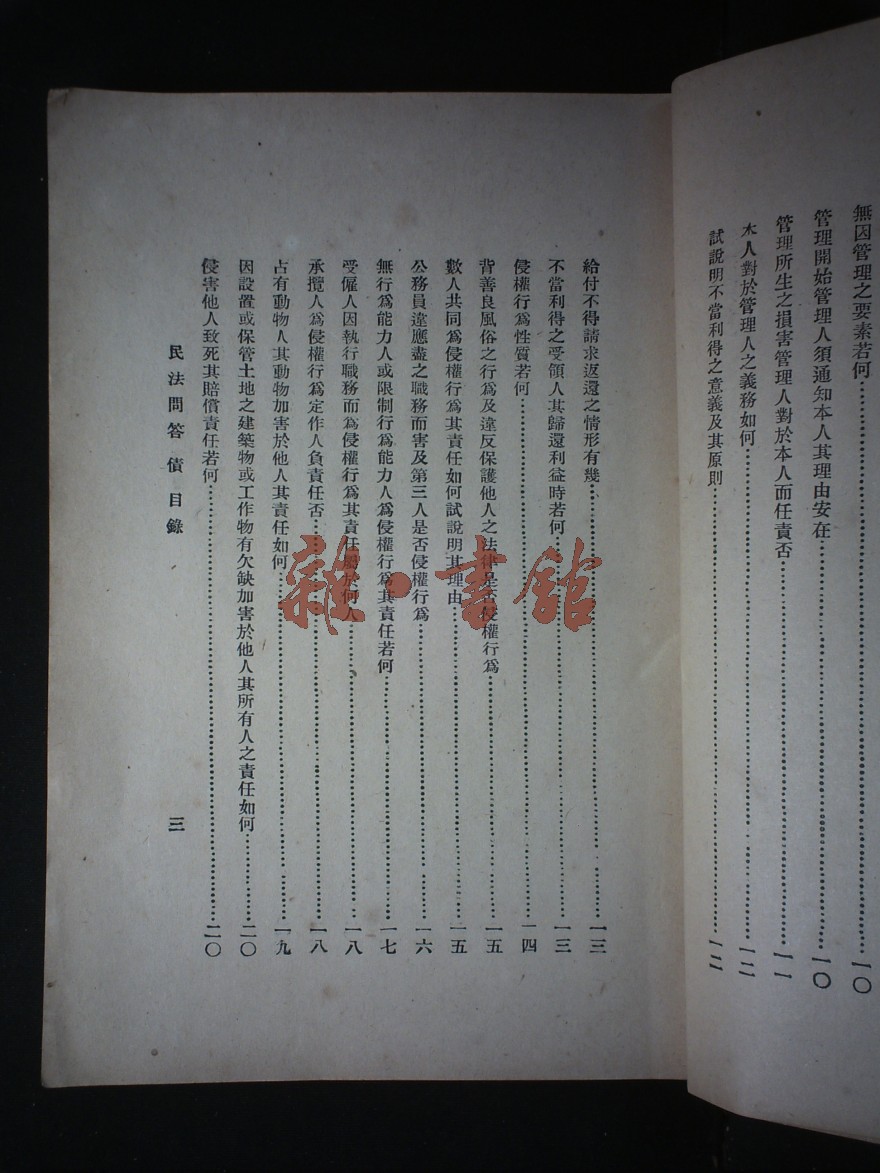 無因管理之要素若何…………一〇
管理開始管理人須通知本人其理由安在…………一〇
管理所生之損害管理人對於本人而任責否…………一一
本人對於管理人之義務如何…………一二
試說明不當利得之意義及其原則…………一二
給付不得請求返還之情形有幾…………一三
不當利得之受領人其歸還利益時若何…………一三
侵權行爲性質若何…………一四
背善良風俗之行爲及違反保護他人之法律是否侵權行爲…………一五
數人共同爲侵權行爲其責任如何試說明其理由…………一五
公務員違應盡之職務而害及第三人是否侵權行爲…………一六
無行爲能力人或限制行爲能力人爲侵權行爲其責任若何…………一七
受僱人因執行職務而爲侵權行爲其責任屬於何人…………一八
承攬人爲侵權行爲定作人負責任否…………一八
占有動物人其動物加害於他人其責任如何…………一九
因設置或保管土地之建築物或工作物有欠缺加害於他人其所有人之責任如何…………二〇
侵害他人致死其賠償責任若何…………二〇
民法問答 債 目錄 三
雜·書館